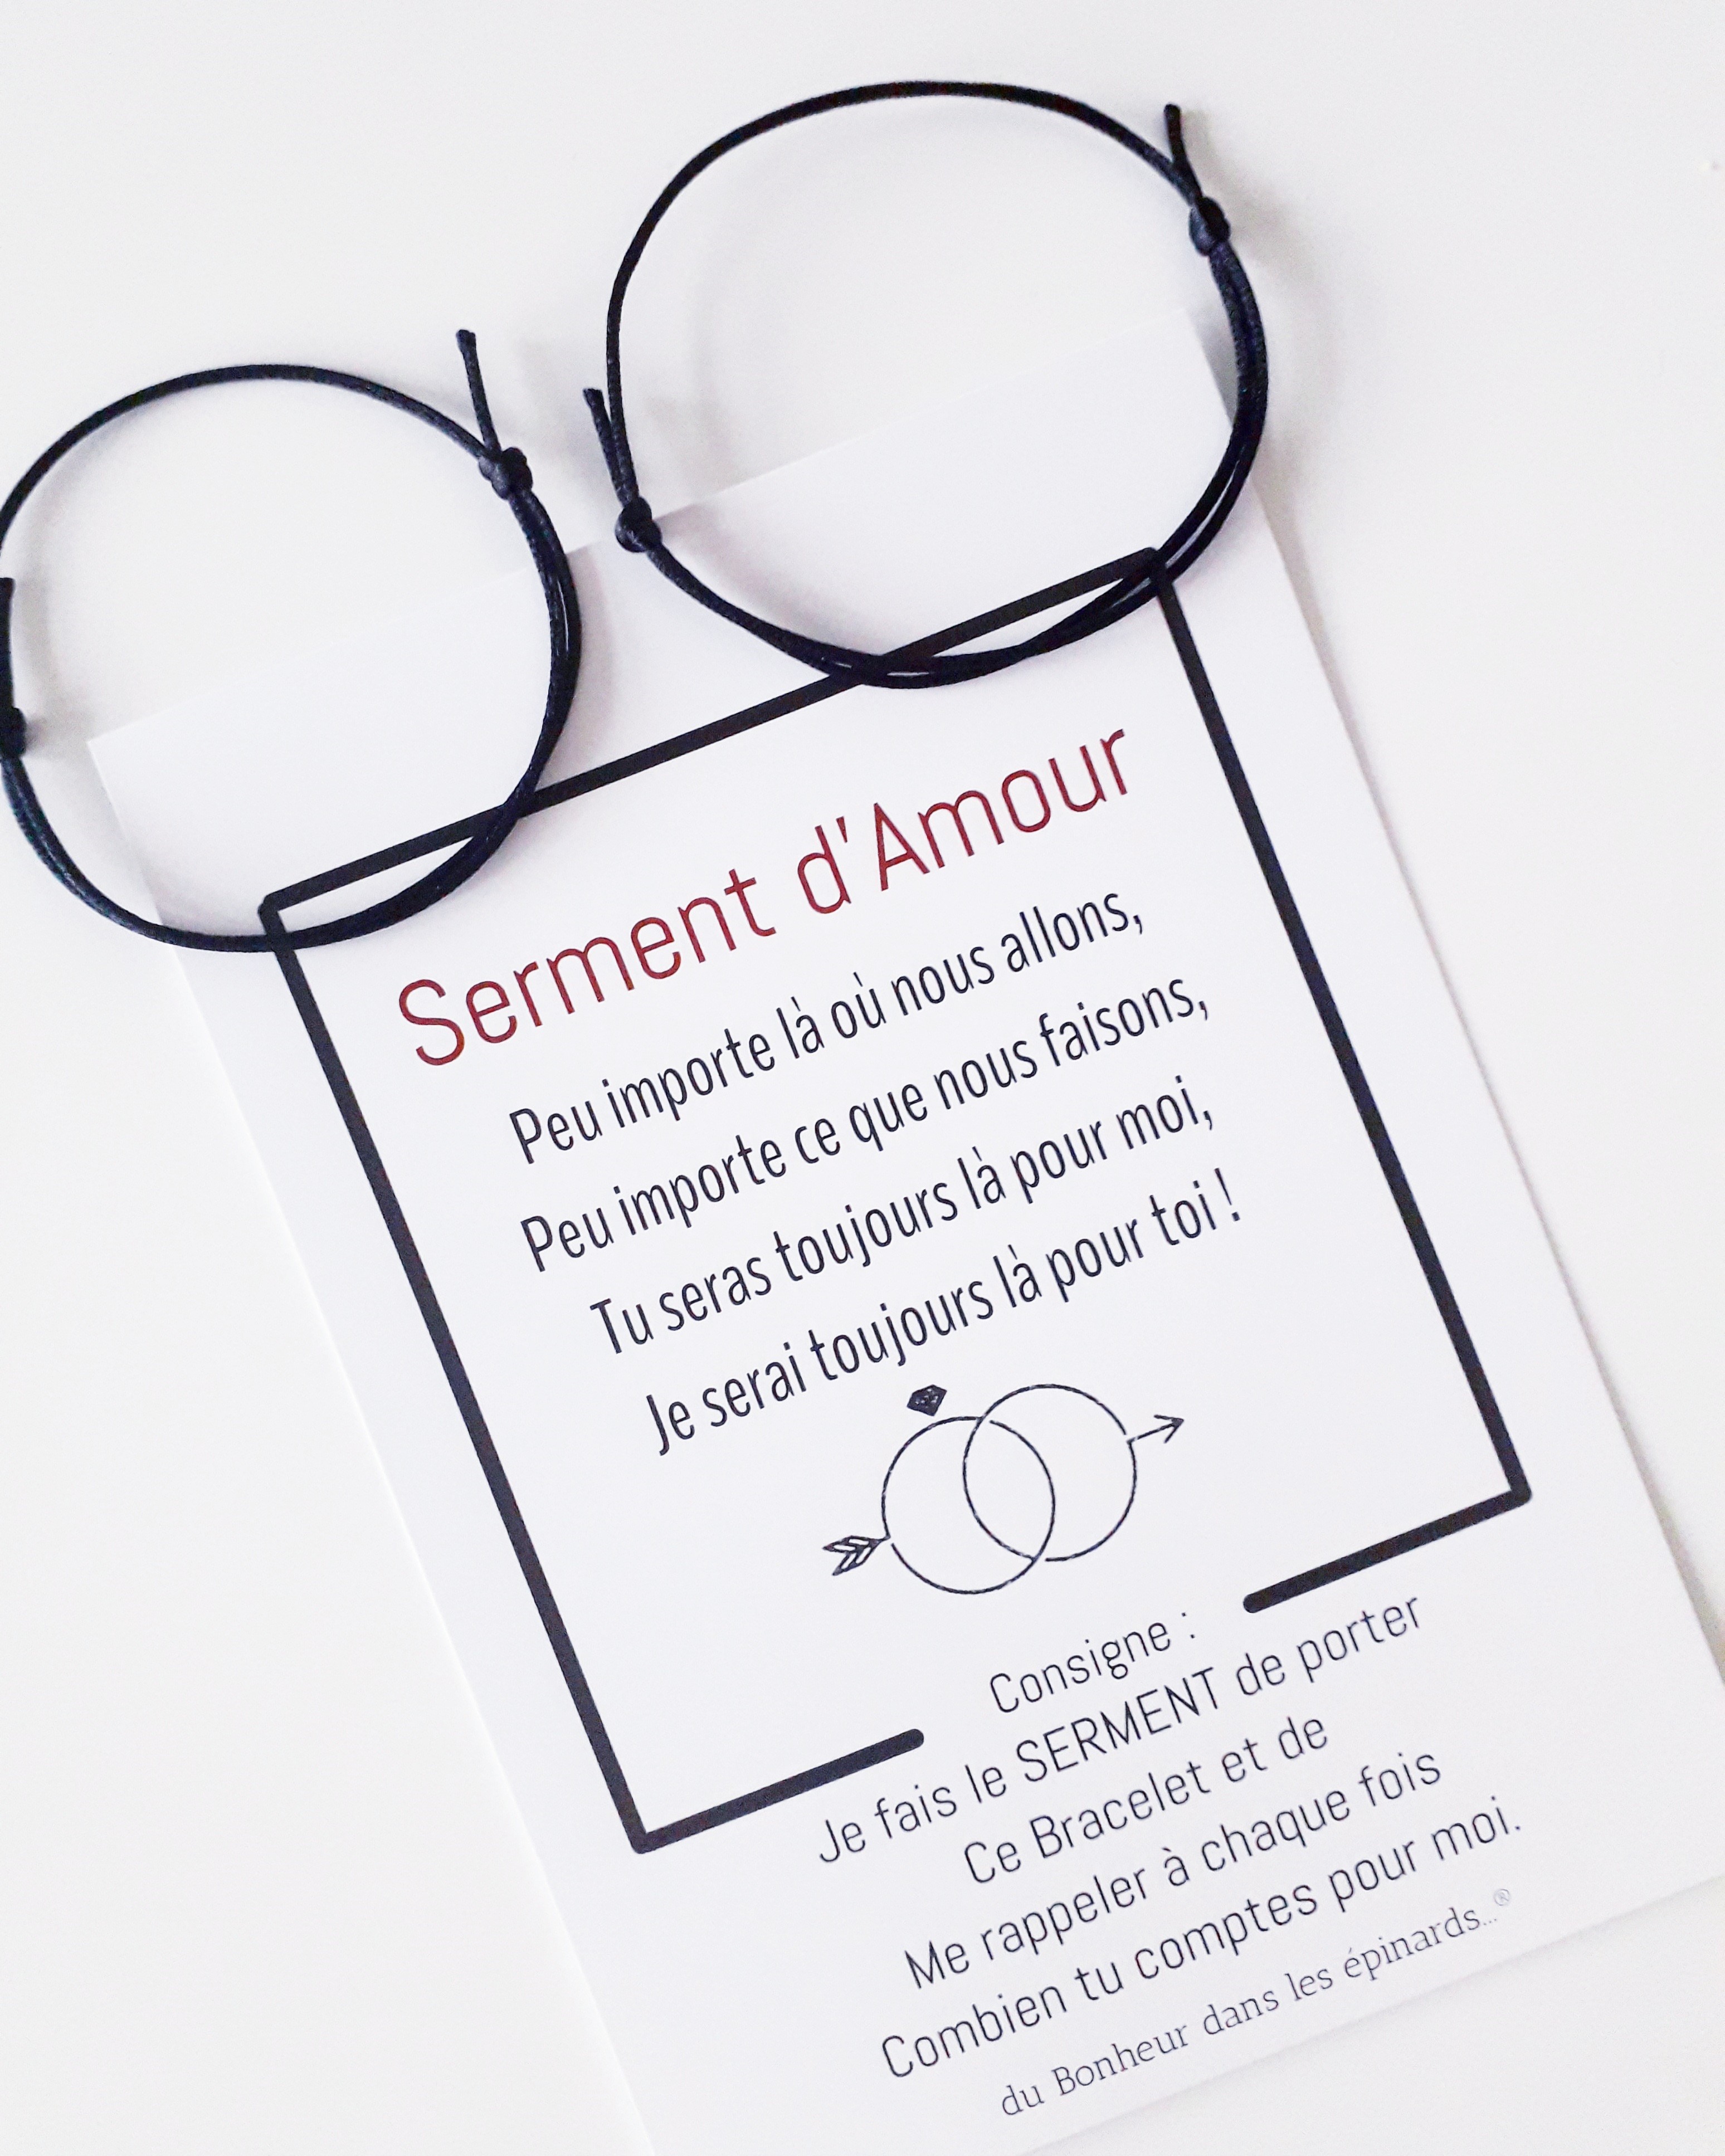 Serment d'Amour
Peu importe là où nous allons,
Peu importe ce que nous faisons,
Tu seras toujours là pour moi,
Je serai toujours là pour toi !
Consigne :
Je fais le SERMENT de porter
Ce Bracelet et de
Me rappeler à chaque fois
Combien tu comptes pour moi.
du Bonheur dans les épinards...®